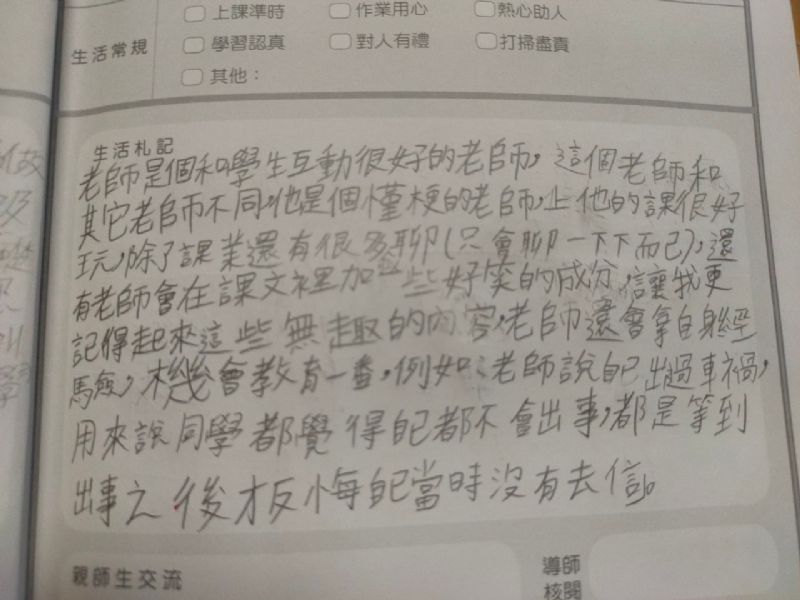 上課準時 作業用心 熱心助人
生活常規 學習認真 對人有禮 打掃盡責
其他：
生活札記
老師是個和學生互動很好的老師，這個老師和
其它老師不同，他是個懂梗的老師，上他的課很好
玩，除了課業還有很多聊（只會聊一下下而已），還
有老師會在課文裡加一些好笑的成分，讓我更
記得起來這些無趣的內容，老師還會拿自身經
驗，機會教育一番，例如：老師說自己出過車禍，
用來說同學都覺得自己都不會出事，都是等到
出事之後才反悔自己當時沒有去信。
親師生交流
導師
核閱